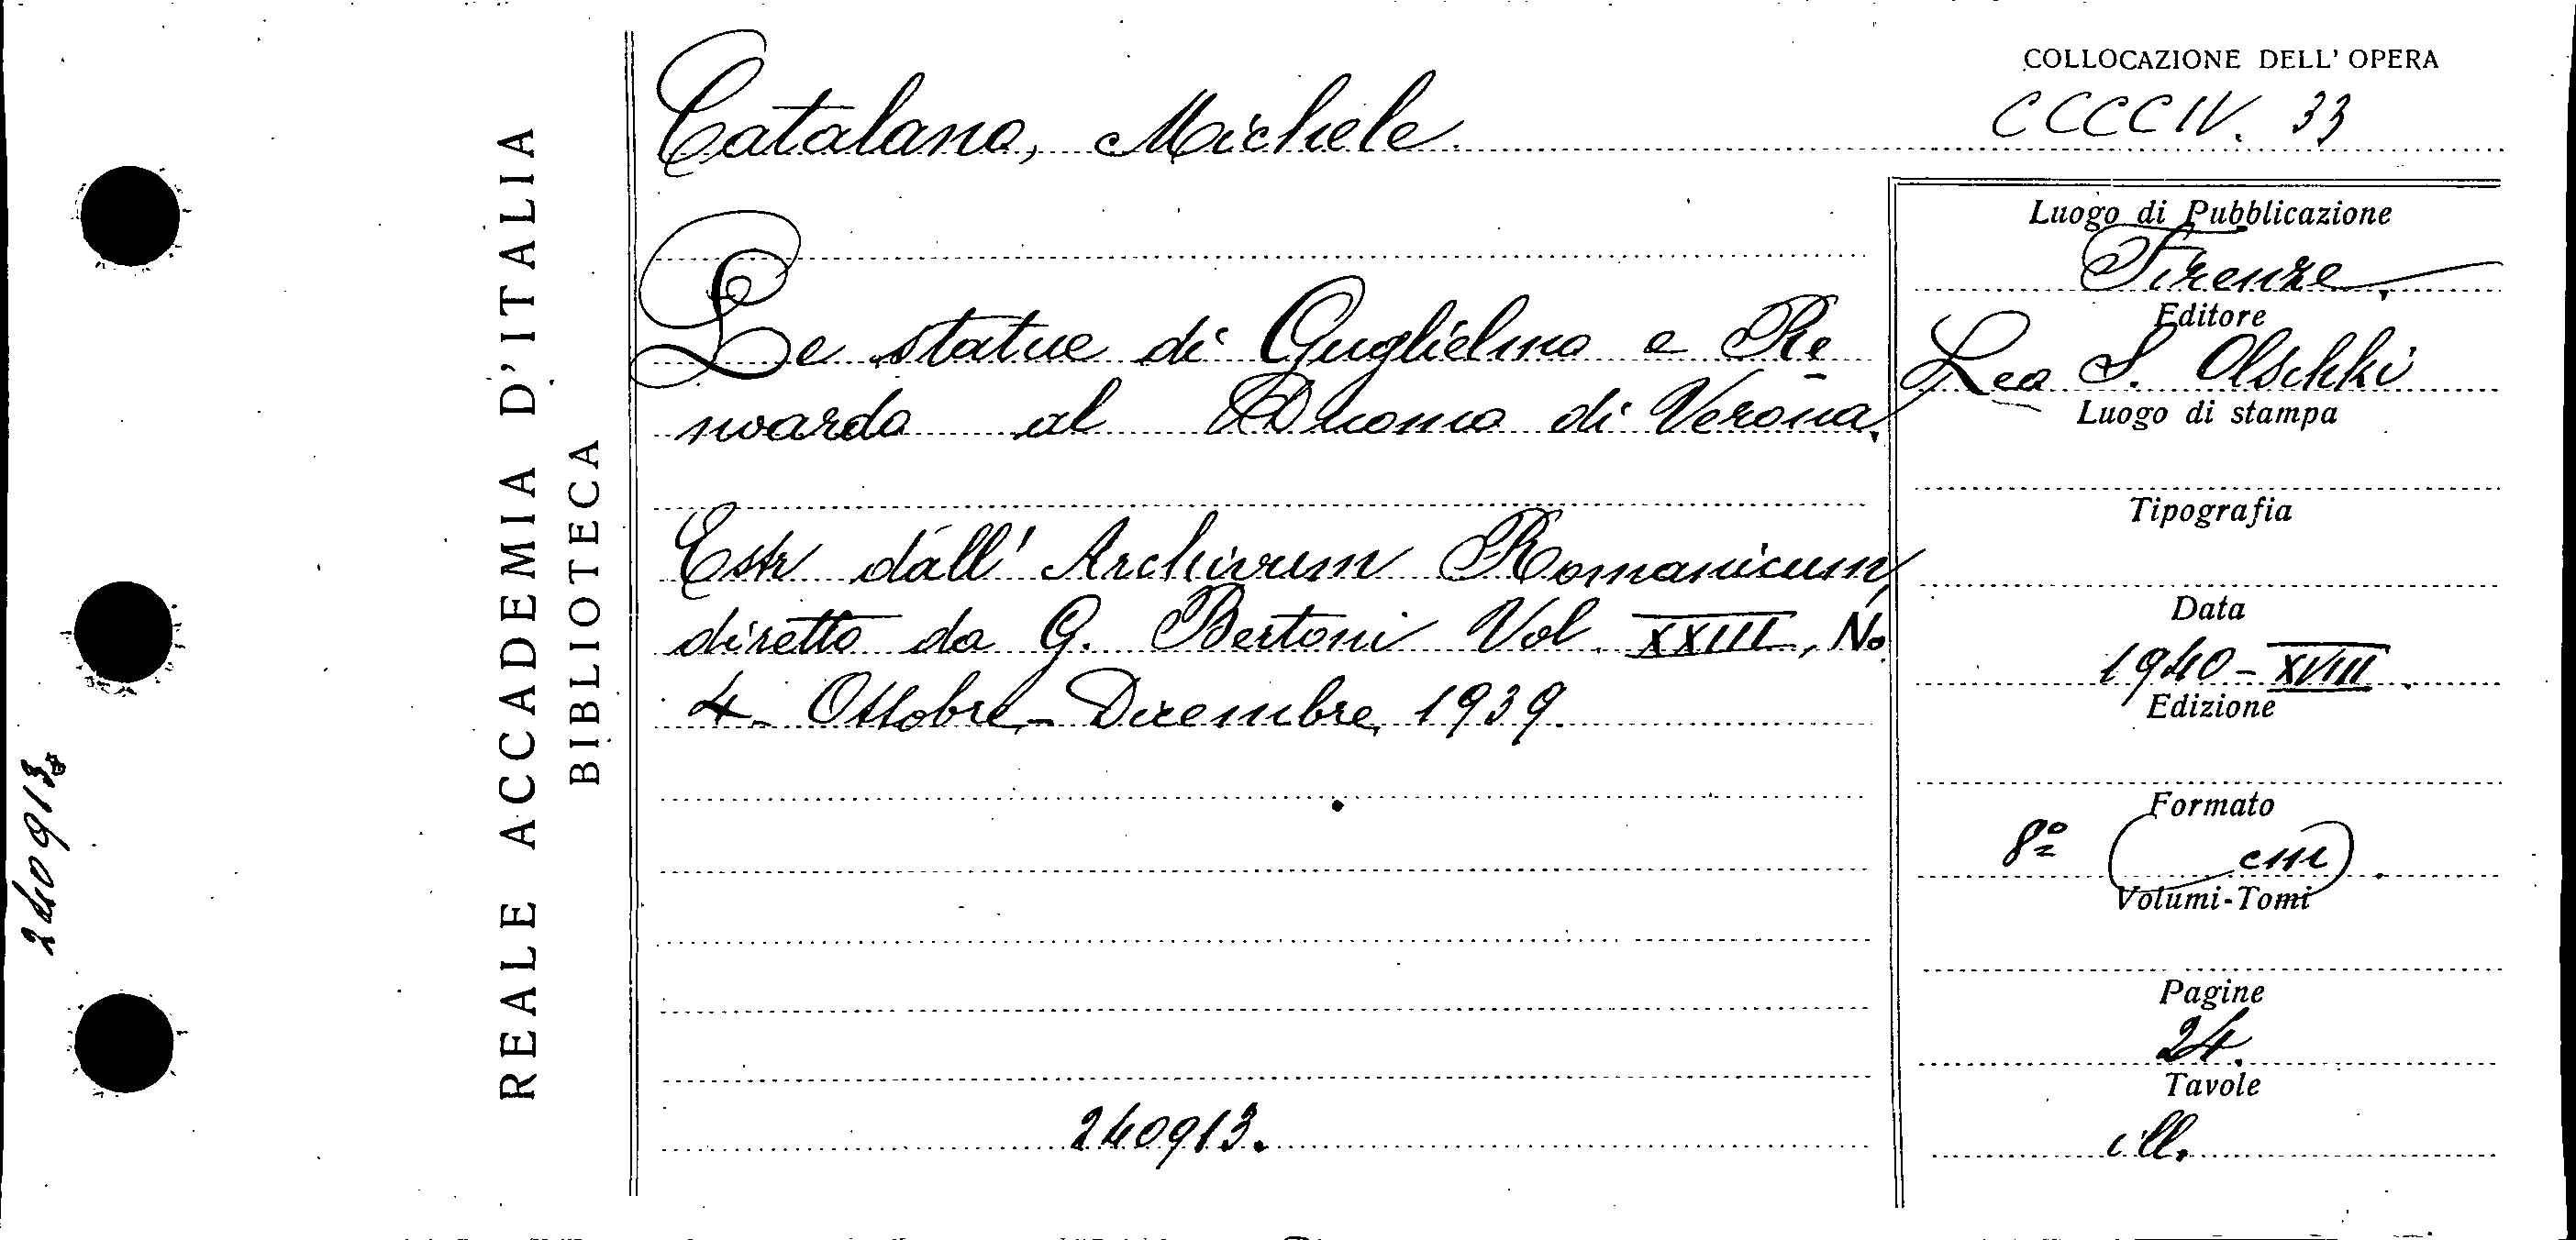 REALE ACCADEMIA D'ITALIA
BIBLIOTECA
240913
Catalano, Michele.
COLLOCAZIONE DELL' OPERA
CCCCIV. 33
Le statue di Guglielmo e Re-
noardo al Duomo di Verona.
Estr dall' Archivum Romanicum,
diretto da G. Bertoni Vol. XXIII, No
4. Ottobre-Dicembre, 1939.
240913.
Luogo di Pubblicazione
Firenze.
Editore
Leo S. Olschki
Luogo di stampa
Tipografia
Data
1940-XVIII.
Edizione
Formato
8º ( cm).
Volumi-Tomi
Pagine
24.
Tavole
ill.